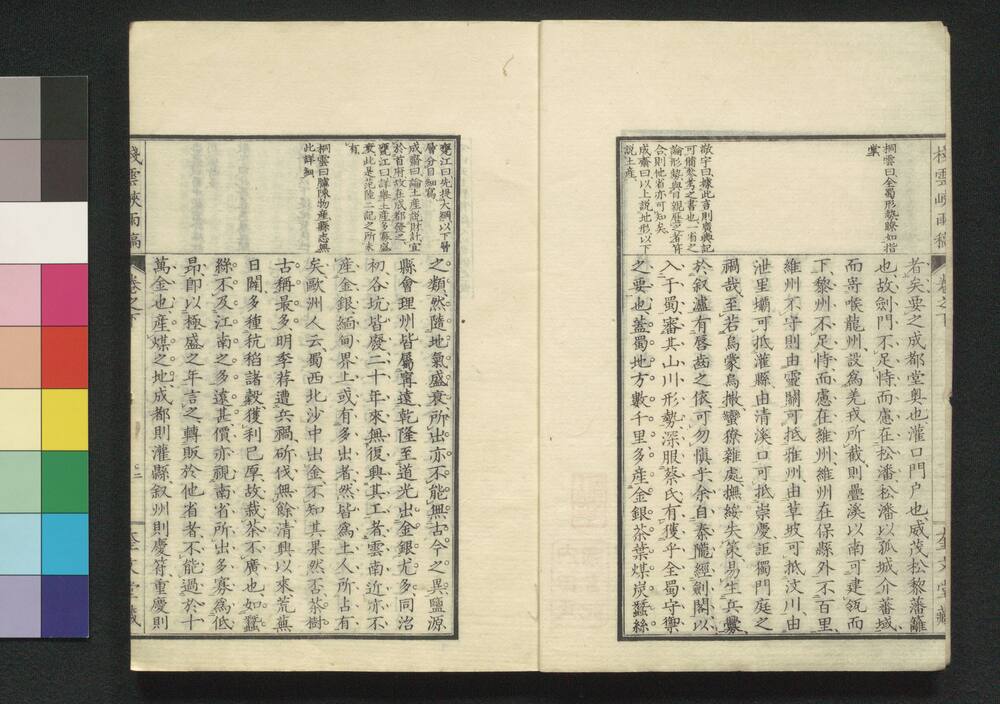 棧雲峽雨稿
卷之下
奎文堂藏
桐雲曰全蜀形勢瞭如指
掌
敬宇曰據此言則廣輿記
可備參考之書也一省之
論形勢與目親歷之者符
合則他省亦可知矣
成齋曰以上說地形以下
說土產
者矣要之成都堂奧也灌口門户也威茂松黎藩籬
也故劍門不足恃而慮在松潘松潘以孤城介蕃域
而嵜喉龍州設爲羌戎所截則疊溪以南可建瓴而
下黎州不足恃而慮在維州維州在保縣外不百里
維州不守則由靈關可抵雅州由草坡可抵汶川由
泄里壩可抵灌縣由清溪口可抵崇慶詎獨門庭之
禍哉至若烏蒙烏撒蠻獠雜處撫綏失策易生兵釁
於叙瀘有唇齒之依可勿愼乎余自秦隴經劍閣以
入于蜀審其山川形勢深服蔡氏有獲乎全蜀守禦
之要也蓋蜀地方數千里多產金銀茶葉煤炭蠶絲
甕江曰先提大綱以下層
層分目細寫
成齋曰論土產說財計宜
於首府故在成都發之
甕江曰詳舉土產多寡盛
衰此是范陸二記之所未
有
桐雲曰臚陳物產縣志無
此詳細
之類然隨地氣盛衰所出亦不能無古今之異鹽源
縣會理州皆屬寧遠乾隆至道光出金銀尤多同治
初各坑皆廢二十年來無復興其工者雲南近亦不
產金銀緬甸界上或有多出者然皆爲土人所占有
矣歐洲人云蜀西北沙中出金不知其果然否茶樹
古稱最多明季荐遭兵禍斫伐無餘清興以來荒蕪
日闢多種秔稻諸穀獲利已厚故栽茶不廣也如蠶
絲不及江南之多遠甚價亦視南省所出多寡爲低
昂卽以極盛之年言之轉販於他省者不能過於十
萬金也產煤之地成都則灌縣叙州則慶符重慶則
棧雲峽雨稿
卷之下
二
奎文堂藏